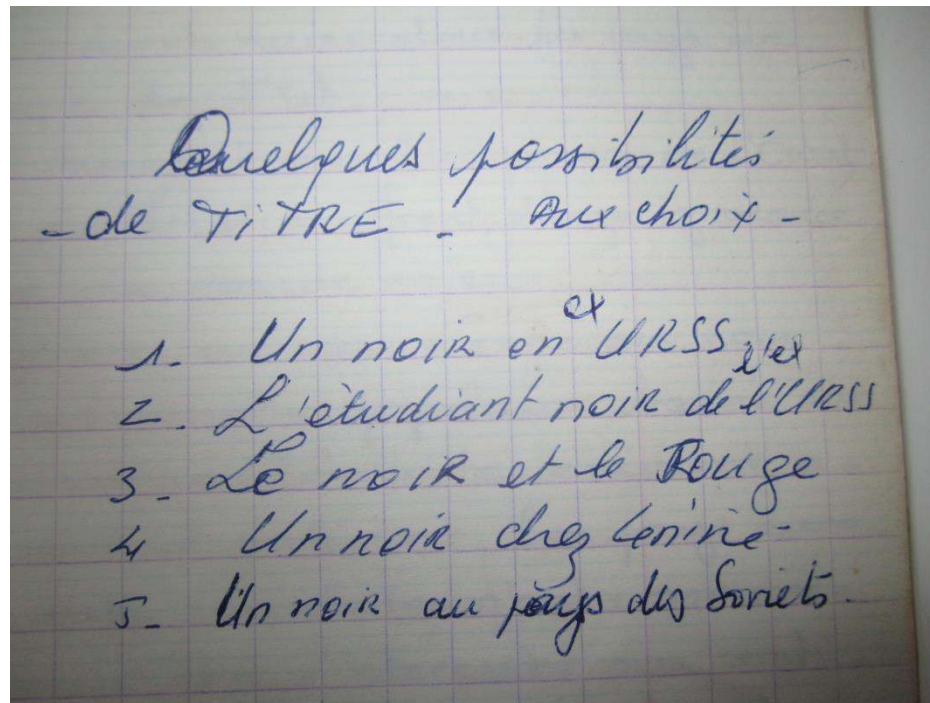 Quelques possibilités
- de TiTRE - Aux choix -
1. Un noir en ex URSS
2. L'étudiant noir de l'ex l'URSS
3 - Le noir et le Rouge
4 Un noir chez Lénine -
5 - Un noir au pays des Soviets.